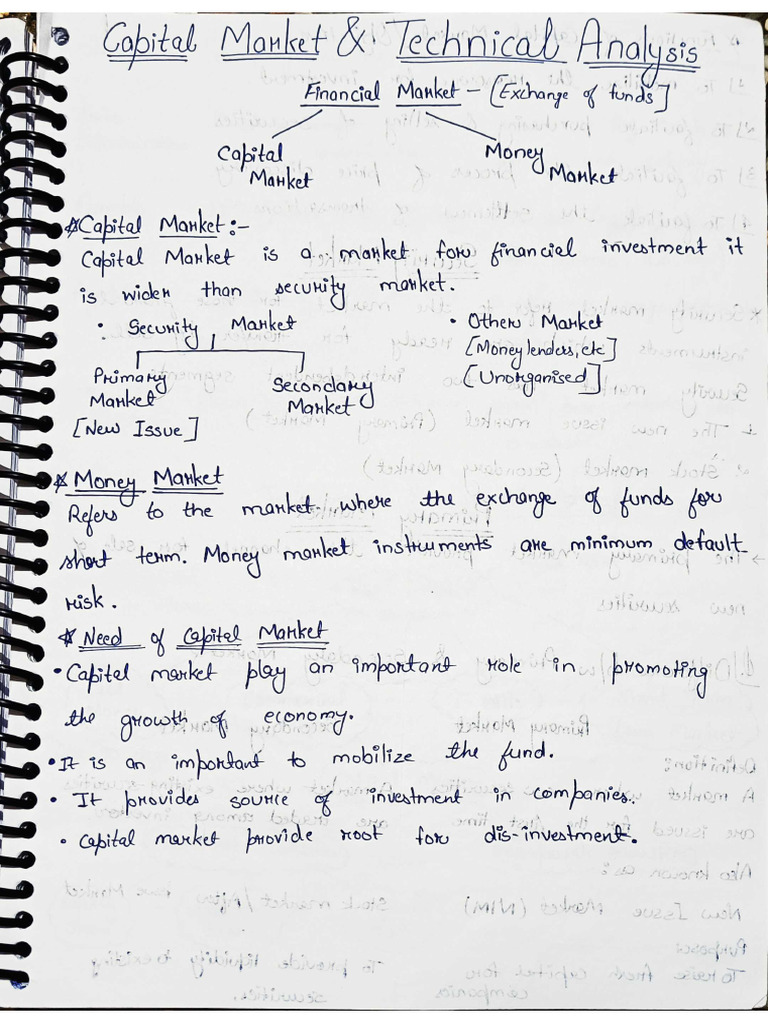 Capital Market & Technical Analysis
Financial Market - [Exchange of funds]
Capital Market
Money Market
* Capital Market :-
Capital Market is a market for financial investment it
is wider than security market.
• Security Market
• Others Market
[Money lenders, etc]
[Unorganised]
Primary Market
Secondary Market
[New Issue]
* Money Market
Refers to the market where the exchange of funds for
short term. Money market instruments are minimum default
risk.
* Need of Capital Market
• Capital market play an important role in promoting
the growth of economy.
• It is an important to mobilize the fund.
• It provides source of investment in companies.
• Capital market provide root for dis-investment.